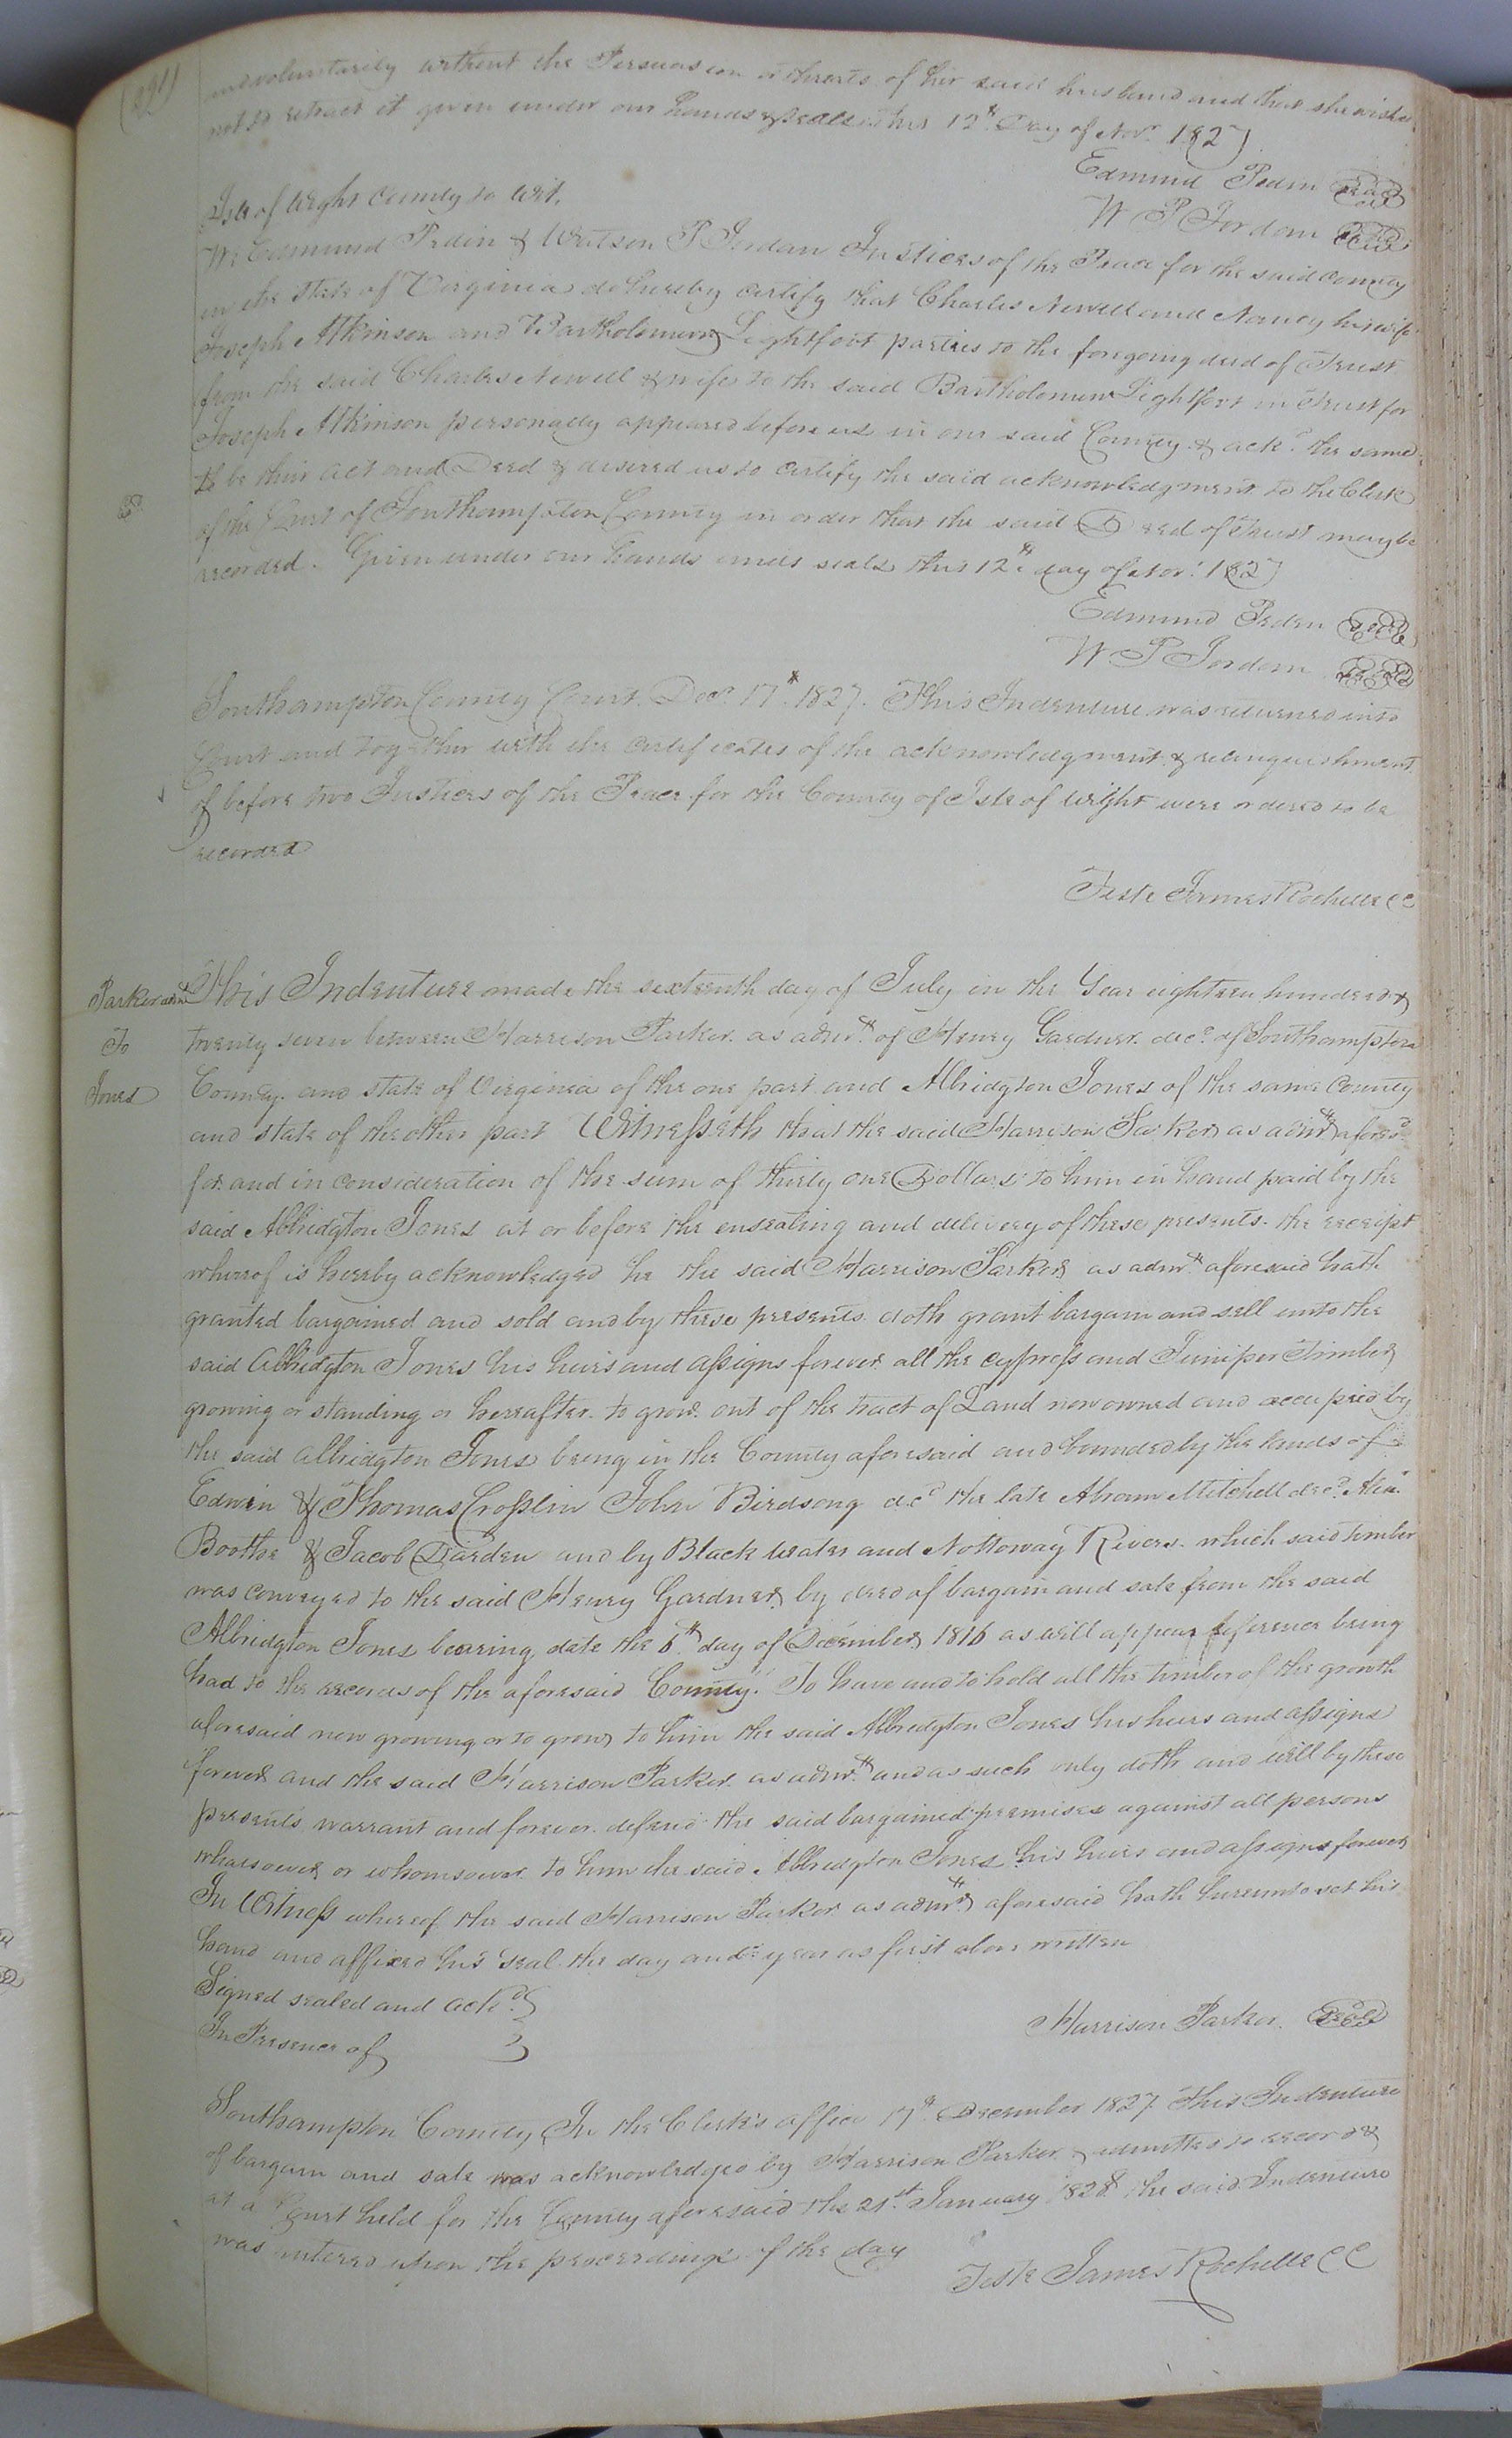 and voluntarily without the Persuasion or threats of her said husband and that she wishes
not to retract it given under our hands & seals this 12th Day of Novr. 1827
Edmund Peden Seal
W P Jordan Seal
Isle of Wight County to wit,
We Edmund Pedin & Watson P Jordan Justices of the Peace for the said County
in the State of Virginia do hereby certify that Charles Newell and Nancy his wife
Joseph Atkinson and Bartholomew Lightfoot parties to the foregoing deed of Trust
from the said Charles Newell & wife to the said Bartholomew Lightfoot in Trust for
Joseph Atkinson personally appeared before us in our said County & ackd. the same
to be their act and Deed & desired us to certify the said acknowledgment to the Clerk
of the Court of Southampton County in order that the said Deed of Trust may be
recorded. Given under our hands and seals this 12th day of Novr. 1827
Edmund Peden Seal
W P Jordan Seal
Southampton County Court Decr. 17th 1827. This Indenture was returned into
Court and together with the certificates of the acknowledgment & relinquishment
of before two Justices of the Peace for the County of Isle of Wight were ordered to be
recorded
Teste James Rochelle CC
Parker adm
To
Jones
This Indenture made the sixteenth day of July in the Year eighteen hundred &
twenty seven between Harrison Parker as admr. of Henry Gardner decd. of Southampton
County and state of Virginia of the one part and Albridgton Jones of the same County
and state of the other part Witnesseth that the said Harrison Parker as admr aforesd.
for and in consideration of the sum of thirty one Dollars to him in hand paid by the
said Albridgton Jones at or before the ensealing and delivery of these presents the receipt
whereof is hereby acknowledged he the said Harrison Parker as admr. aforesaid hath
granted bargained and sold and by these presents doth grant bargain and sell unto the
said Albridgton Jones his heirs and assigns forever all the cypress and Juniper Timber
growing or standing or hereafter to grow out of the tract of Land now owned and occupied by
the said Albridgton Jones being in the County aforesaid and bounded by the lands of
Edwin & Thomas Crosslin John Birdsong decd the late Abram Mitchell decd.
Boothe & Jacob Darden and by Black water and Nottoway Rivers which said timber
was conveyed to the said Henry Gardner by deed of bargain and sale from the said
Albridgton Jones bearing date the 6th day of December 1816 as will appear reference being
had to the records of the aforesaid County. To have and to hold all the timber of the growth
aforesaid now growing or to grow to him the said Albridgton Jones his heirs and assigns
forever and the said Harrison Parker as admr. and as such only doth and will by these
presents warrant and forever defend the said bargained premises against all persons
whatsoever or whomsoever to him the said Albridgton Jones his heirs and assigns forever
In Witness whereof the said Harrison Parker as admr. aforesaid hath hereunto set his
hand and affixed his seal the day and year as first above written
Signed sealed and ackd.
In Presence of
Harrison Parker Seal
Southampton County In the Clerk's office 17th December 1827 This Indenture
of bargain and sale was acknowledged by Harrison Parker & admitted to record &
at a Court held for the County aforesaid the 21st January 1828 the said Indenture
was entered upon the proceedings of the day
Teste James Rochelle CC